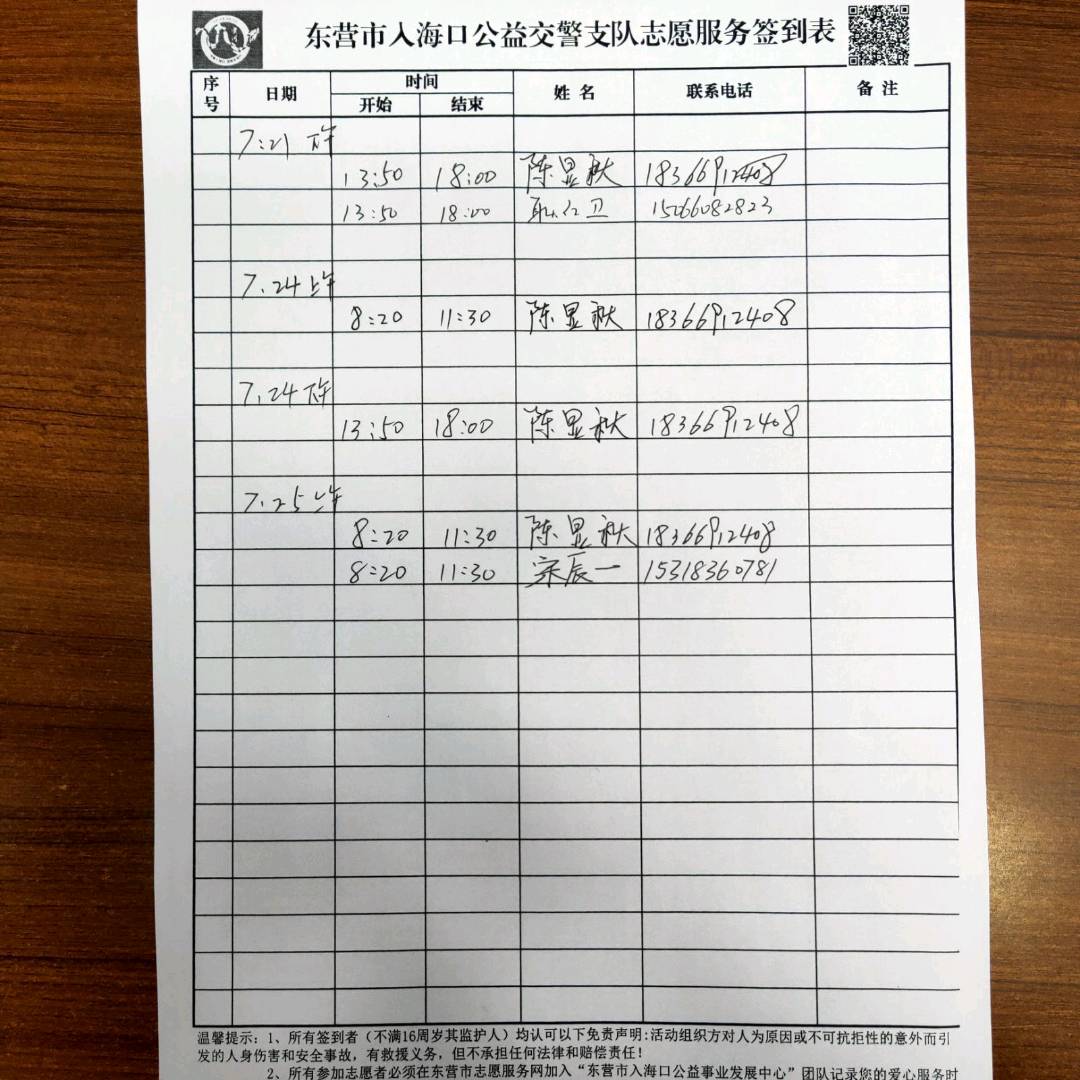 东营市入海口公益交警支队志愿服务签到表
序号 日期 时间 姓名 联系电话 备注
开始 结束
7:21 下午
13:50 18:00 陈显秋 18366912408
13:50 18:00 卫 15066082823
7.24上午
8:20 11:30 陈显秋 18366912408
7.24下午
13:50 18:00 陈显秋 18366912408
7.25上午
8:20 11:30 陈显秋 18366912408
8:20 11:30 宋辰一 15318360781
温馨提示：1、所有签到者（不满16周岁其监护人）均认可以下免责声明：活动组织方对人为原因或不可抗拒性的意外而引
发的人身伤害和安全事故，有救援义务，但不承担任何法律和赔偿责任！
2、所有参加志愿者必须在东营市志愿服务网加入“东营市入海口公益事业发展中心”团队记录您的爱心服务时